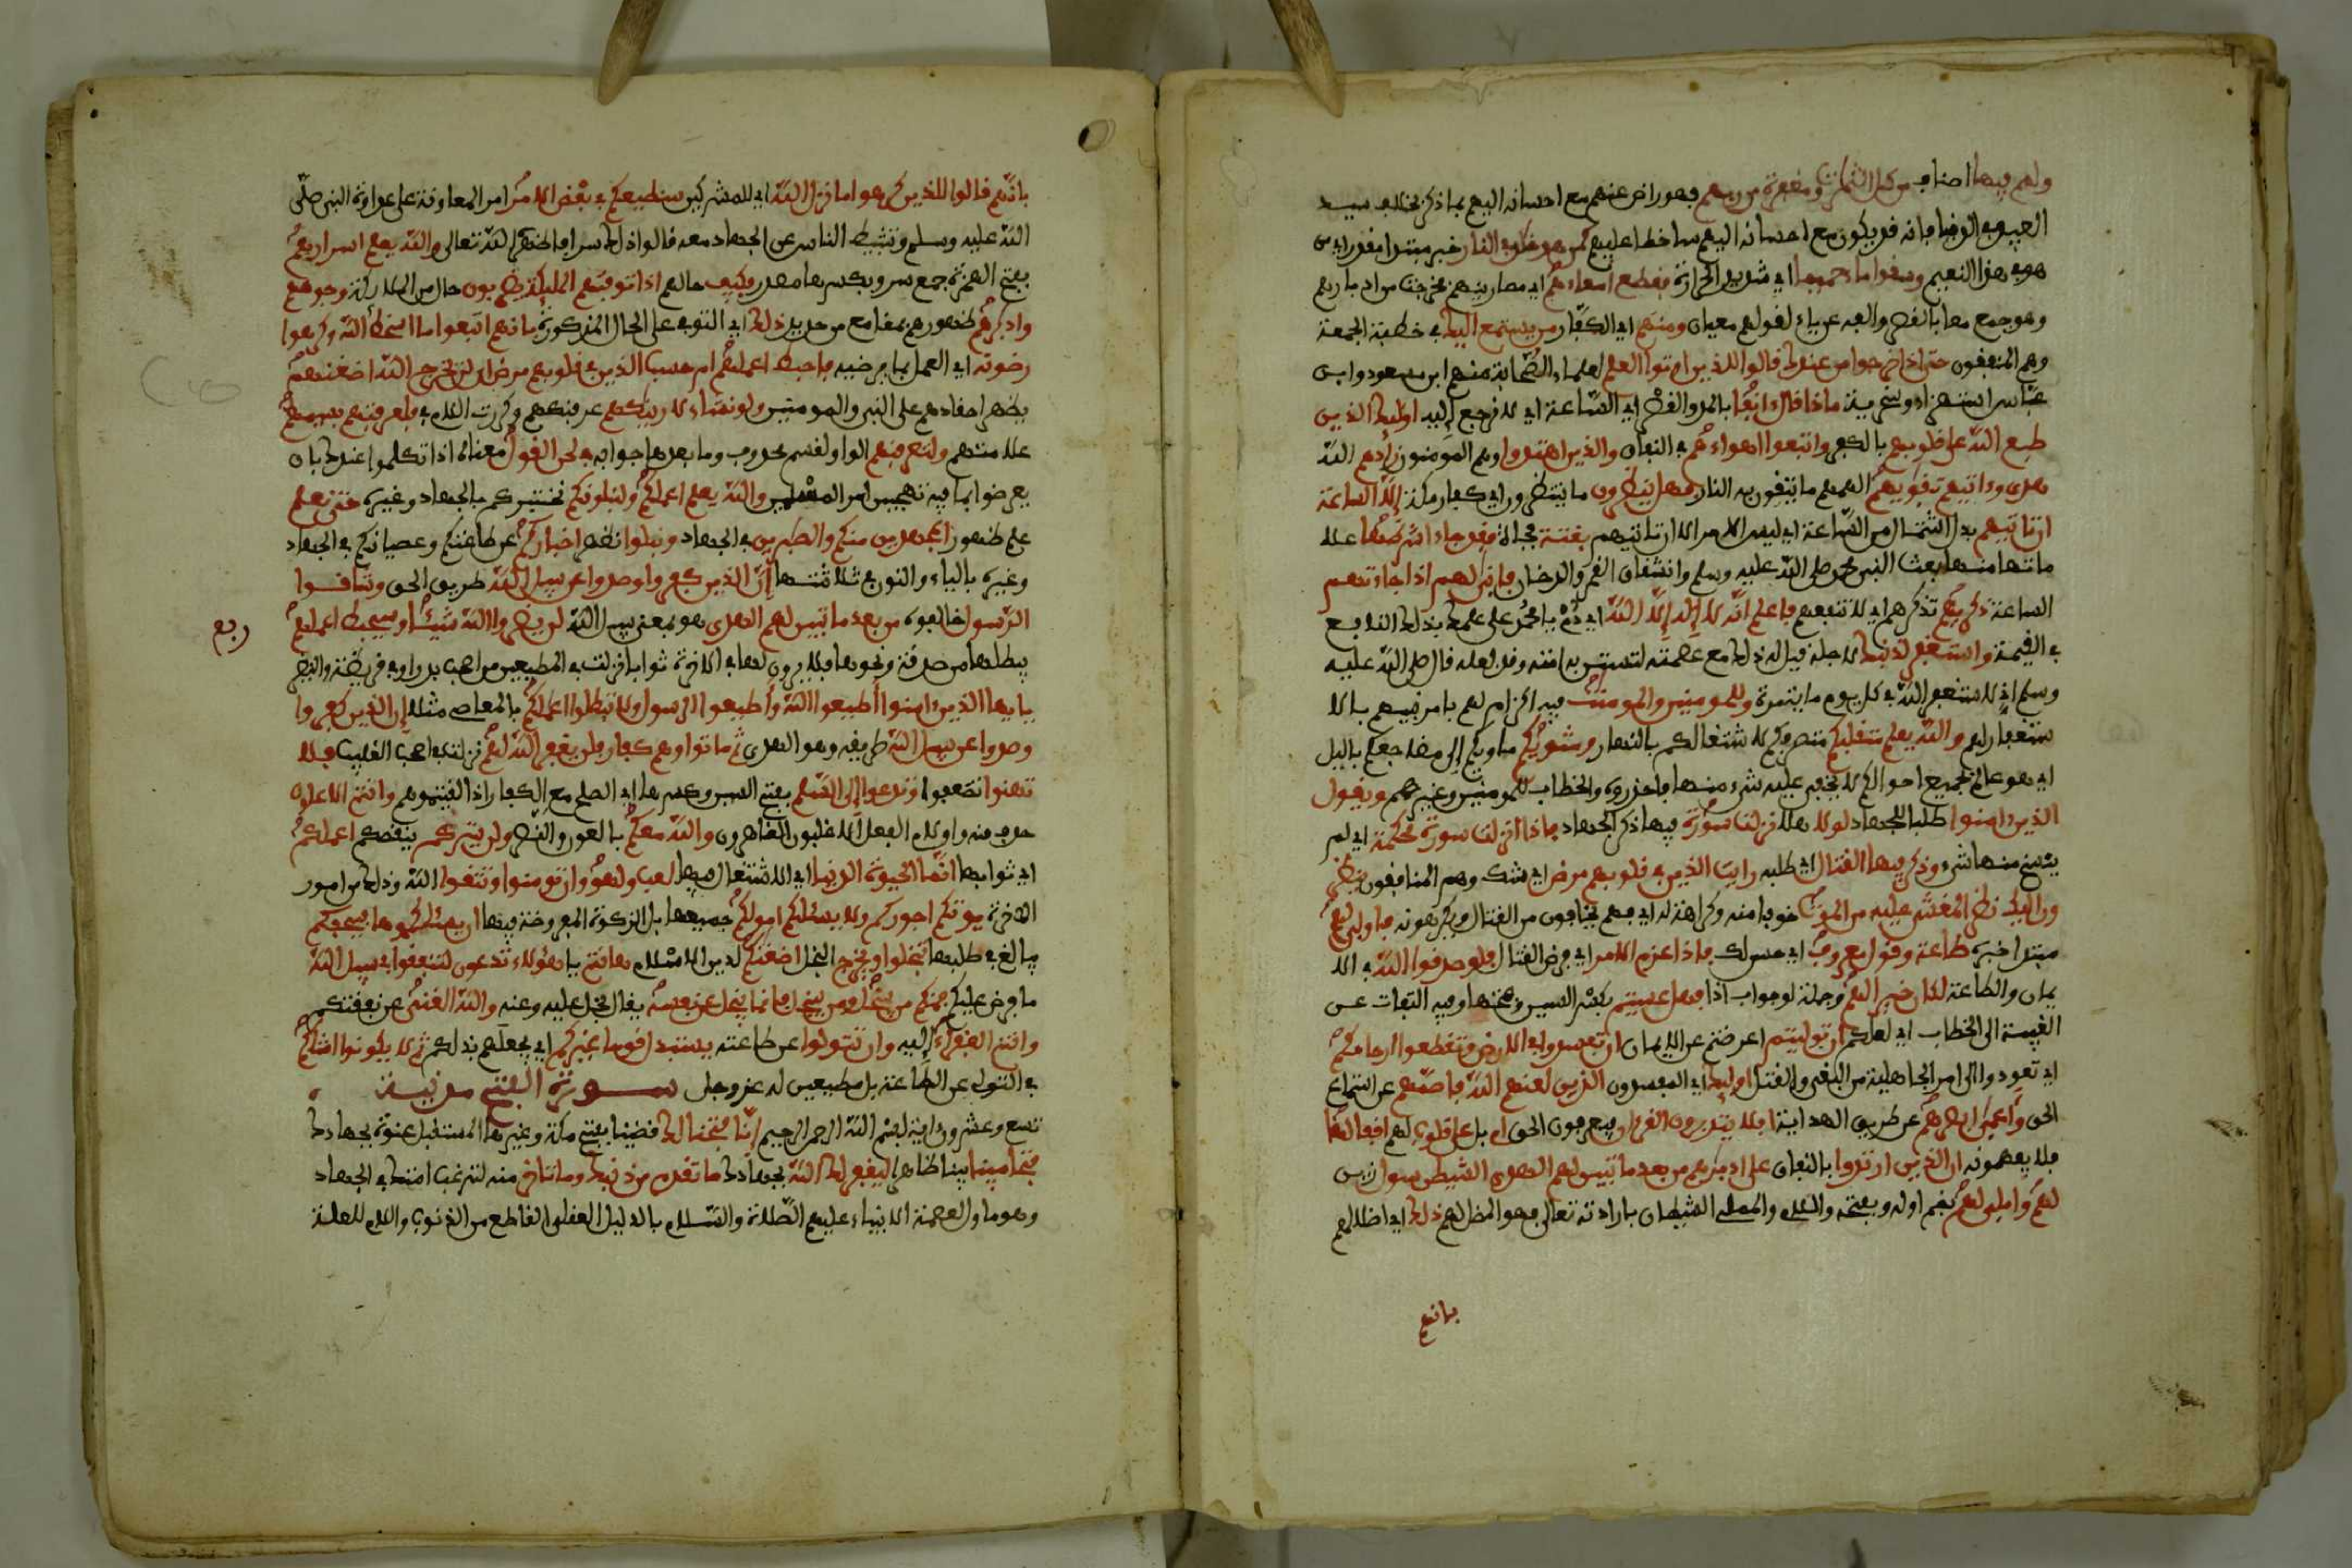 ولهم فيها اصناف من كل الثمرات ومغفرة من ربهم فهو راض عنهم مع احسانه اليهم بما ذكر بخلاف سيد
العبيد في الدنيا فانه قد يكون مع احسانه اليهم ساخطا عليهم كمن هو خلد في النار خبر مبتدا مقدر اي من
هو في هذا النعيم وسقوا ماء حميما اي شديد الحرارة فقطع امعاءهم اي مصارينهم فخرجت من ادبارهم
وهو جمع معا بالقصر والفه عن ياء لقولهم معيان ومنهم اي الكفار من يستمع اليك في خطبة الجمعة
وهم المنفقون حتى اذا خرجوا من عندك قالوا للذين اوتوا العلم لعلماء الصحابة منهم ابن مسعود وابن
عباس استهزاء وسخرية ماذا قال ءانفا بالمد والقصر اي الساعة اي لا نرجع إليه اوليك الذين
طبع الله على قلوبهم بالكفر واتبعوا اهواءهم في النفاق والذين اهتدوا وهم المومنون زادهم الله
هدى وءاتيهم تقويهم الهمهم ما يتقون به النار فهل ينظرون ما ينتظرون اي كفار مكة إلا الساعة
ان تاتيهم بدل اشتمال من الساعة اي ليس الامر الا ان تاتيهم بغتة فجاة فقد جاء اشراطها علا
ماتها منها بعث النبي محمد صلى الله عليه وسلم وانشقاق القمر والدخان فانى لهم اذا جاءتهم
الساعة ذكريهم تذكرهم اي لا تنفعهم فاعلم انه لا إله إلا الله اي دم يا محمد على علمك بذلك النافع
في القيمة واستغفر لذنبك لاجله قيل له ذلك مع عصمته لتستن به امته وقد فعله قال صلى الله عليه
وسلم إني لاستغفر الله في كل يوم ماية مرة وللمومنين والمومنت فيه اكرام لهم بامر نبيهم بالا
ستغفار لهم والله يعلم متقلبكم متصرفكم لاشتغالكم بالنهار ومثويكم ماويكم إلى مضاجعكم باليل
اي هو عالم بجميع احوالكم لا يخفى عليه شيء منها فاحذروه والخطاب للمومنين وغيرهم ويقول
الذين ءامنوا طلبا للجهاد لولا هلا نزلت سورة فيها ذكر الجهاد فاذا انزلت سورة محكمة اي لم
ينسخ منها شيء وذكر فيها القتال اي طلبه رايت الذين في قلوبهم مرض اي شك وهم المنافقون ينظر
ون اليك نظر المغشي عليه من الموت خوفا منه وكراهة له اي فهم يخافون من القتال ويكرهونه فاولى لهم
مبتدا خبره طاعة وقول معروف اي حسن لك فاذا عزم الامر اي فرض القتال فلو صدقوا الله في الا
يمان والطاعة لكان خيرا لهم وجملة لو جواب اذا فهل عسيتم بكسر السين وفتحها وفيه التفات عن
الغيبة الى الخطاب اي لعلكم ان توليتم اعرضتم عن الايمان ان تفسدوا في الارض وتقطعوا ارحامكم
اي تعودوا الى امر الجاهلية من البغي والقتل اوليك اي المفسدون الذين لعنهم الله فاصمهم عن استماع
الحق واعمى ابصرهم عن طريق الهداية افلا يتدبرون القرءان فيعرفون الحق ام بل على قلوب لهم اقفالها
فلا يفهمونه ان الذين ارتدوا بالنفاق على ادبرهم من بعد ما تبين لهم الهدى الشيطن سول زين
لهم واملى لهم بضم اوله وبفتحه واللام والمملي الشيطان بارادته تعالى فهو المضل لهم ذلك اي اضلالهم
بانهم
بانهم قالوا للذين كرهوا ما نزل الله اي للمشركين سنطيعكم في بعض الامر امر المعاونة على عداوة النبي صلى
الله عليه وسلم وتثبيط الناس عن الجهاد معه قالوا ذلك سرا فاظهره الله تعالى والله يعلم اسرارهم
بفتح الهمزة جمع سر وبكسرها مصدر فكيف حالهم اذا توفتهم المليكة يضربون حال من الملايكة وجوههم
وادبرهم ظهورهم بمقامع من حديد ذلك اي التوفي على الحال المذكورة بانهم اتبعوا ما اسخط الله وكرهوا
رضونه اي العمل بما يرضيه فاحبط اعملهم ام حسب الذين في قلوبهم مرض ان لن يخرج الله اضغنهم
يظهر احقادهم على النبي والمومنين ولو نشاء لارينكهم عرفنكهم وكررت اللام في فلعرفتهم بسيمهم
علامتهم ولتعرفنهم الواو لقسم محذوف وما بعدها جوابه في لحن القول معناه اذا تكلموا عندك بان
يعرضوا بما فيه تهجين امر المسلمين والله يعلم اعملكم ولنبلونكم نختبركم بالجهاد وغيره حتى نعلم
علم ظهور المجهدين منكم والصبرين في الجهاد ونبلوا نظهر اخباركم عن طاعتكم وعصيانكم في الجهاد
وغيره بالياء والنون في ثلاثتها إن الذين كفروا وصدوا عن سبيل الله طريق الحق وشاقوا
الرسول خالفوه من بعد ما تبين لهم الهدى هو بمعنى سبيل الله لن يضروا الله شيئا وسيحبط اعملهم
ربع
يبطلها من صدقة ونحوها فلا يرون لها في الاخرة ثوابا نزلت في المطعمين من اصحاب بدر او في قريظة والنضير
يايها الذين ءامنوا أطيعوا الله وأطيعوا الرسول ولا تبطلوا اعملكم بالمعاصي مثلا إن الذين كفروا
وصدوا عن سبيل الله طريقه وهو الهدى ثم ماتوا وهم كفار فلن يغفر الله لهم نزلت في اصحاب القليب فلا
تهنوا تضعفوا وتدعوا إلى السلم بفتح السين وكسرها اي الصلح مع الكفار اذا لقيتموهم وانتم الاعلون
حذف منه واو لام الفعل الاغلبون القاهرون والله معكم بالعون والنصر ولن يتركم ينقصكم اعملكم
اي ثوابها انما الحيوة الدنيا اي الاشتغال فيها لعب ولهو وان تومنوا وتتقوا الله وذلك من امور
الاخرة يوتكم اجوركم ولا يسئلكم امولكم جميعها بل الزكوة المفروضة فيها ان يسئلكموها فيحفكم
يبالغ في طلبها تبخلوا ويخرج البخل اضغنكم لدين الاسلام هانتم يا هولاء تدعون لتنفقوا في سبيل الله
ما فرض عليكم فمنكم من يبخل ومن يبخل فانما يبخل عن نفسه يقال بخل عليه وعنه والله الغني عن نفقتكم
وانتم الفقراء إليه وان تتولوا عن طاعته يستبدل قوما غيركم اي يجعلهم بدلكم ثم لا يكونوا امثلكم
في التولي عن الطاعة بل مطيعين له عز وجل سورة الفتح مدنية
تسع وعشرون ءاية بسم الله الرحمن الرحيم إنا فتحنا لك قضينا بفتح مكة وغيرها المستقبل عنوة بجهادك
فتحا مبينا بينا ظاهرا ليغفر لك الله بجهادك ما تقدم من ذنبك وما تاخر منه لترغب امتك في الجهاد
وهو ماول لعصمة الانبياء عليهم الصلاة والسلام بالدليل العقلي القاطع من الذنوب واللام للعلة